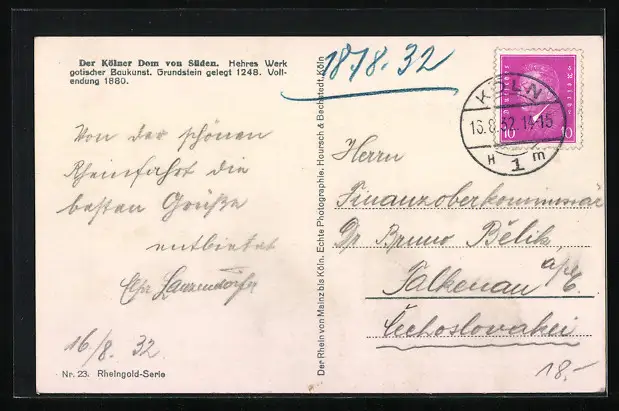 Der Kölner Dom von Süden. Hehres Werk
gotischer Baukunst. Grundstein gelegt 1248. Voll-
endung 1880.
18/8. 32
Von der schönen
Rheinfahrt die
besten Grüße
entbietet
16/8. 32
Nr. 23. Rheingold-Serie
Der Rhein von Mainz bis Köln. Echte Photographie. Hoursch & Bechstedt, Köln
KÖLN
16.8.32.14-15
H 1 m
10 10
Herrn
Finanzoberkommissär
Dr Bruno Bělik,
Falkenau a/E.
Čechoslovakei
18.-